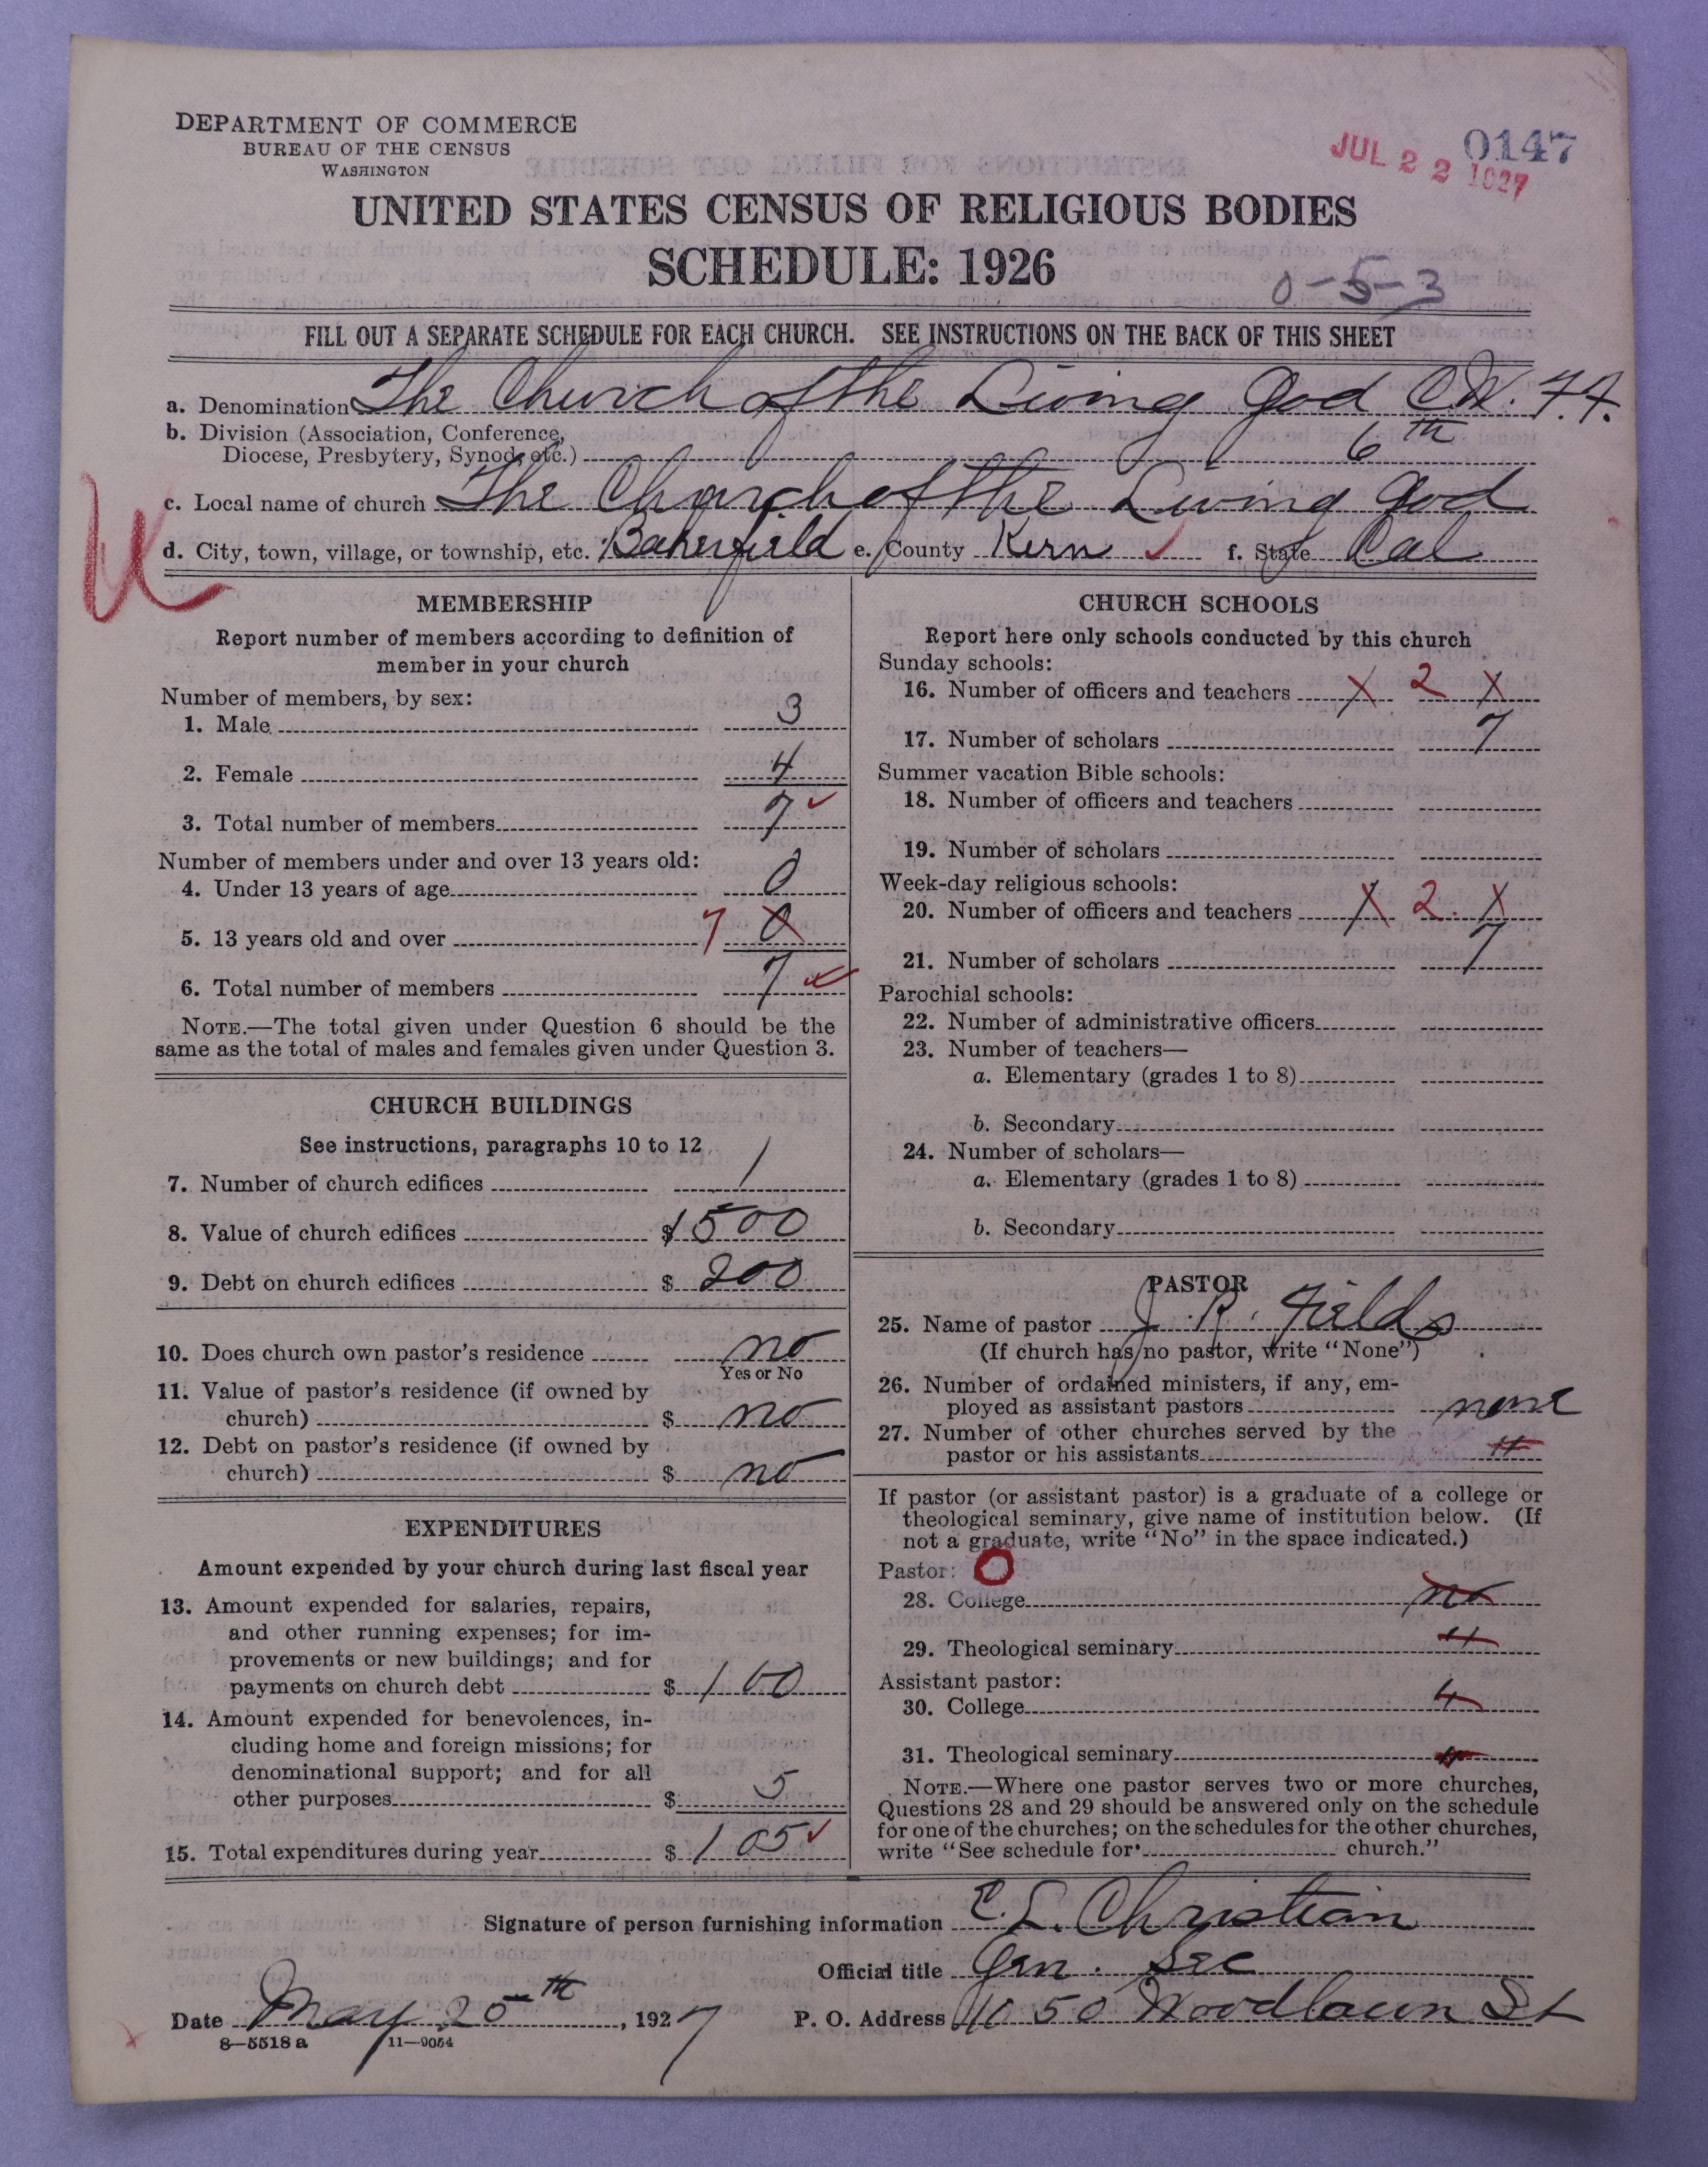 DEPARTMENT OF COMMERCE
BUREAU OF THE CENSUS
WASHINGTON
0147
JUL 22 1927
UNITED STATES CENSUS OF RELIGIOUS BODIES
SCHEDULE: 1926
0-5-3
FILL OUT A SEPARATE SCHEDULE FOR EACH CHURCH. SEE INSTRUCTIONS ON THE BACK OF THIS SHEET
a. Denomination The Church of the Living God C.W.F.F.
b. Division (Association, Conference,
Diocese, Presbytery, Synod, etc.) 6th
c. Local name of church The Church of the Living God
d. City, town, village, or township, etc. Bakerfield e. County Kern f. State Cal
MEMBERSHIP
Report number of members according to definition of
member in your church
Number of members, by sex:
1. Male 3
2. Female 4
3. Total number of members 7
Number of members under and over 13 years old:
4. Under 13 years of age 0
5. 13 years old and over 7 0
6. Total number of members 7
NOTE.—The total given under Question 6 should be the
same as the total of males and females given under Question 3.
CHURCH BUILDINGS
See instructions, paragraphs 10 to 12
7. Number of church edifices 1
8. Value of church edifices $1500
9. Debt on church edifices $ 200
10. Does church own pastor's residence no
Yes or No
11. Value of pastor's residence (if owned by
church) $ no
12. Debt on pastor's residence (if owned by
church) $ no
EXPENDITURES
Amount expended by your church during last fiscal year
13. Amount expended for salaries, repairs,
and other running expenses; for im-
provements or new buildings; and for
payments on church debt $ 100
14. Amount expended for benevolences, in-
cluding home and foreign missions; for
denominational support; and for all
other purposes $ 5
15. Total expenditures during year $ 105
CHURCH SCHOOLS
Report here only schools conducted by this church
Sunday schools:
16. Number of officers and teachers X 2 X
17. Number of scholars 7
Summer vacation Bible schools:
18. Number of officers and teachers
19. Number of scholars
Week-day religious schools:
20. Number of officers and teachers X 2. X
21. Number of scholars 7
Parochial schools:
22. Number of administrative officers
23. Number of teachers—
a. Elementary (grades 1 to 8)
b. Secondary
24. Number of scholars—
a. Elementary (grades 1 to 8)
b. Secondary
PASTOR
25. Name of pastor J. R. Fields
(If church has no pastor, write "None")
26. Number of ordained ministers, if any, em-
ployed as assistant pastors none
27. Number of other churches served by the
pastor or his assistants "
If pastor (or assistant pastor) is a graduate of a college or
theological seminary, give name of institution below. (If
not a graduate, write "No" in the space indicated.)
Pastor: O
28. College no
29. Theological seminary "
Assistant pastor:
30. College "
31. Theological seminary "
NOTE.—Where one pastor serves two or more churches,
Questions 28 and 29 should be answered only on the schedule
for one of the churches; on the schedules for the other churches,
write "See schedule for church."
Signature of person furnishing information E. L. Christian
Official title Gen. Sec
Date May 25th, 1927 P. O. Address 1050 Woodlawn St
8—5518 a 11—9054